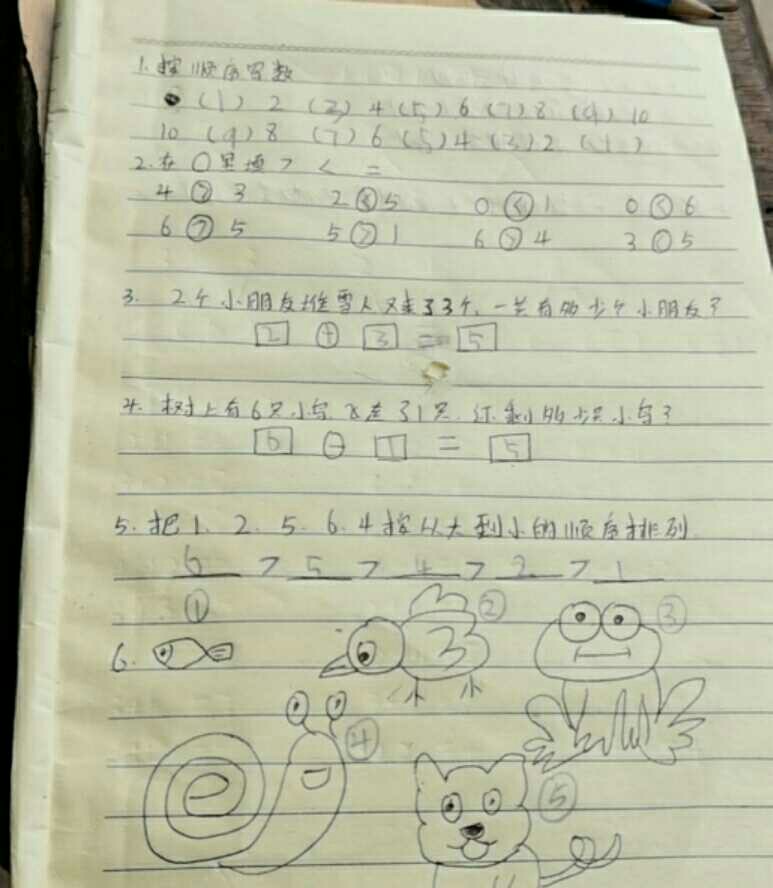 1. 按顺序写数
(1) 2 (3) 4 (5) 6 (7) 8 (9) 10
10 (9) 8 (7) 6 (5) 4 (3) 2 (1)
2. 在○里填 > < =
4 > 3 2 < 5 0 < 1 0 < 6
6 > 5 5 > 1 6 > 4 3 < 5
3. 2个小朋友堆雪人又来了3个,一共有多少个小朋友?
2 + 3 = 5
4. 树上有6只小鸟飞走了1只,还剩多少只小鸟?
6 - 1 = 5
5. 把1. 2. 5. 6. 4按从大到小的顺序排列.
6 > 5 > 4 > 2 > 1
① ② ③
6.
④
⑤